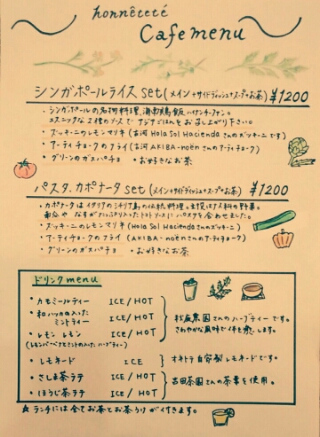 honnêteté
Cafe menu
シンガポールライス set (メイン+サイドディッシュ+スープ+お茶) ¥1200
・シンガポールの名物料理、海南鶏飯(ハイナンチーファン)。
エスニックな2種のソースで
お召し上がり下さい。
・ズッキーニのレモンマリネ (古河 Hola Sol Hacienda さんのズッキーニです)
・アーティチョークのフライ (古河 AKIBA-noen さんのアーティチョーク)
・グリーンのガスパチョ ・お好きなお茶
パスタ、カポナータ set (メイン+サイドディッシュ+スープ+お茶) ¥1200
・カポナータはイタリアのシチリア島の伝統料理。
トマトソースにパスタを合わせました。
・ズッキーニのレモンマリネ (Hola Sol Hacienda さんのズッキーニ)
・アーティチョークのフライ (AKIBA-noen さんのアーティチョーク)
・グリーンのガスパチョ ・お好きなお茶
ドリンク menu
・カモミールティー ICE / HOT
・和ハッカの入ったミントティー ICE / HOT
・レモン レモン ICE / HOT
(レモンバーベナとミントの入った ハーブティー)
さんのハーブティーです。
さわやかな風味で
・レモネード ICE オキトラ自家製レモネードです。
・さしま茶ラテ ICE / HOT
・ほうじ茶ラテ ICE / HOT
吉田茶園さんの茶葉を使用。
☆ ランチには全てお茶とお茶うけがつきます。